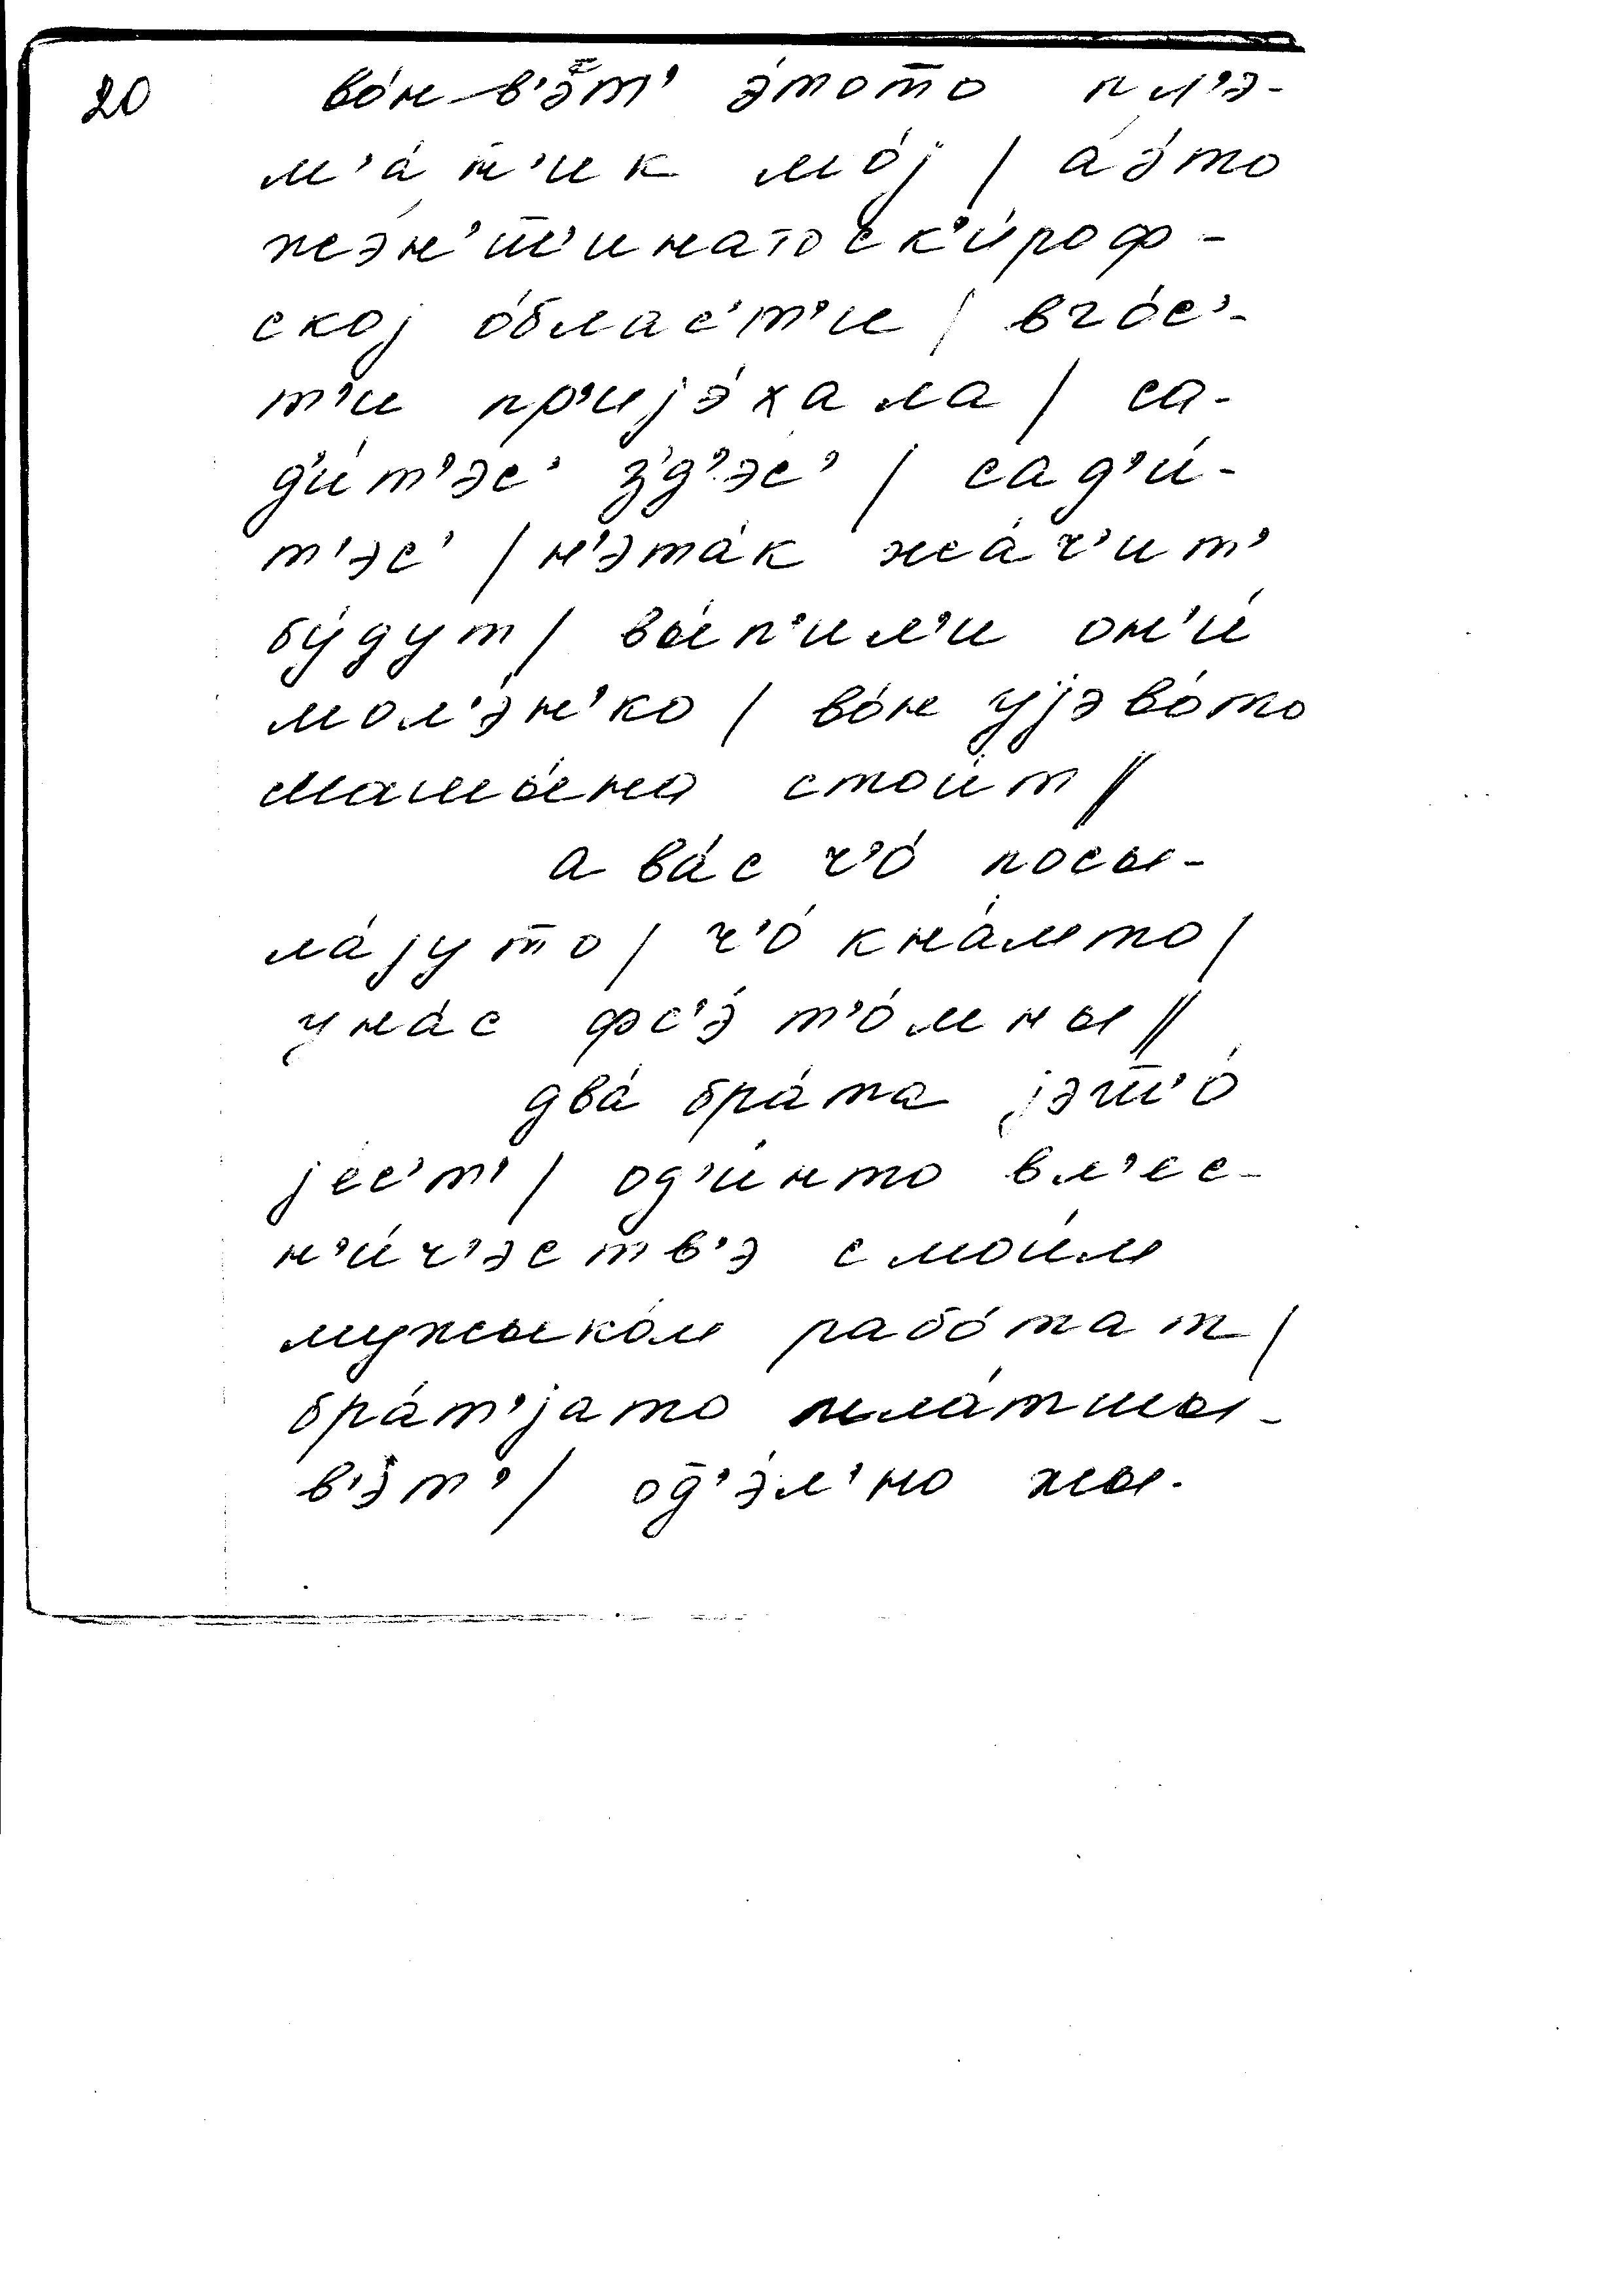 20 во́н в'э̄т' э́тото̄ пл'э-
м'а́н'ик мо́ј / а э́то
жэ́н'ш̄'инато с к'и́роф-
ској о́блас'т'и / в го́с'-
т'и пр'ијэ́хала / са-
д'и́т'эс' з'д'эс' / сад'и́-
т'эс' / н'э та́к жа́ч'ит'
бу́дут / вы́п'ил'и он'и́
мол'э́н'ко / во́н у јэво́то
машы́на стои́т //
а ва́с ч'о́ посы-
ла́јут̄о / ч'о́ к на́мто /
у на́с фс'э́ т'о́мны //
два́ бра́та јэш̄'о́
јес'т' / од'и́нто в л'ес-
н'и́ч'эств'э с мои́м
мужыко́м рабо́тат /
бра́т'јато мла́тшы-
в'э́т' / од̄'э́л'но жы-